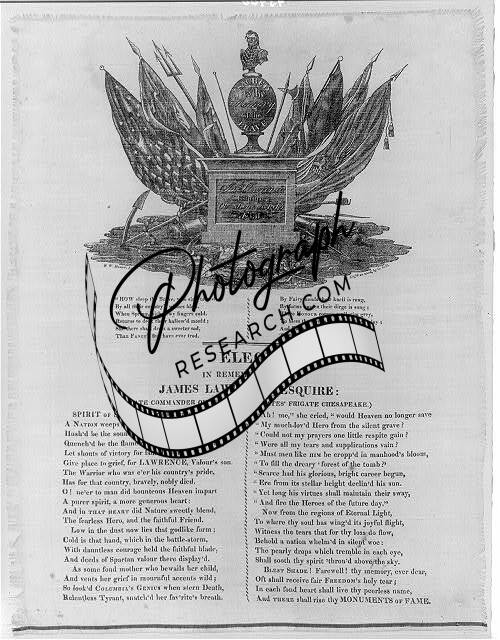 "HOW sleep the
By all their country
When Spring, fingers cold,
Returns to deck their hallow'd mould;
She there shall dress a sweeter sod,
Than FANCY'S feet have ever trod.
By Fairy hands their knell is rung,
their dirge is sung;
Photograph
RESEARCH.COM
IN REMEM
JAMES LAW ESQUIRE:
COMMANDER OF
FRIGATE CHESAPEAKE.)
SPIRIT OF
A NATION weeps
Hush'd be the
Quench'd be the
Let shouts of victory for
Give place to grief, for LAWRENCE, Valour's son.
The Warrior who was e'er his country's pride,
Has for that country, bravely, nobly died.
O! ne'er to man did bounteous Heaven impart
A purer spirit, a more generous heart:
And in THAT HEART did Nature sweetly blend,
The fearless Hero, and the faithful Friend.
Low in the dust now lies that godlike form;
Cold is that hand, which in the battle-storm,
With dauntless courage held the faithful blade,
And deeds of Spartan valour there display'd.
As some fond mother who bewails her child,
And vents her grief in mournful accents wild;
So look'd COLUMBIA'S GENIUS when stern Death,
Relentless Tyrant, snatch'd her fav'rite's breath.
Ah! me," she cried, "would Heaven no longer save
"My much-lov'd Hero from the silent grave?
"Could not my prayers one little respite gain?
"Were all my tears and supplications vain?
"Must men like HIM be cropp'd in manhood's bloom,
"To fill the dreary 'forest of the tomb?'
"Scarce had his glorious, bright career begun,
"Ere from its stellar height declin'd his sun.
"Yet long his virtues shall maintain their sway,
"And fire the Heroes of the future day."
Now from the regions of Eternal Light,
To where thy soul has wing'd its joyful flight,
Witness the tears that for thy loss do flow,
Behold a nation whelm'd in silent woe:
The pearly drops which tremble in each eye,
Shall sooth thy spirit thron'd above the sky.
BLEST SHADE! Farewell! thy memory, ever dear,
Oft shall receive fair FREEDOM'S holy tear;
In each fond heart shall live thy peerless name,
And THERE shall rise thy MONUMENTS OF FAME.